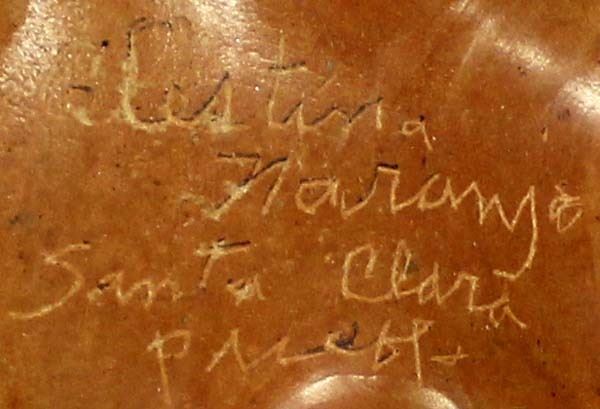 Celestina
Naranjo
Santa Clara
pueblo